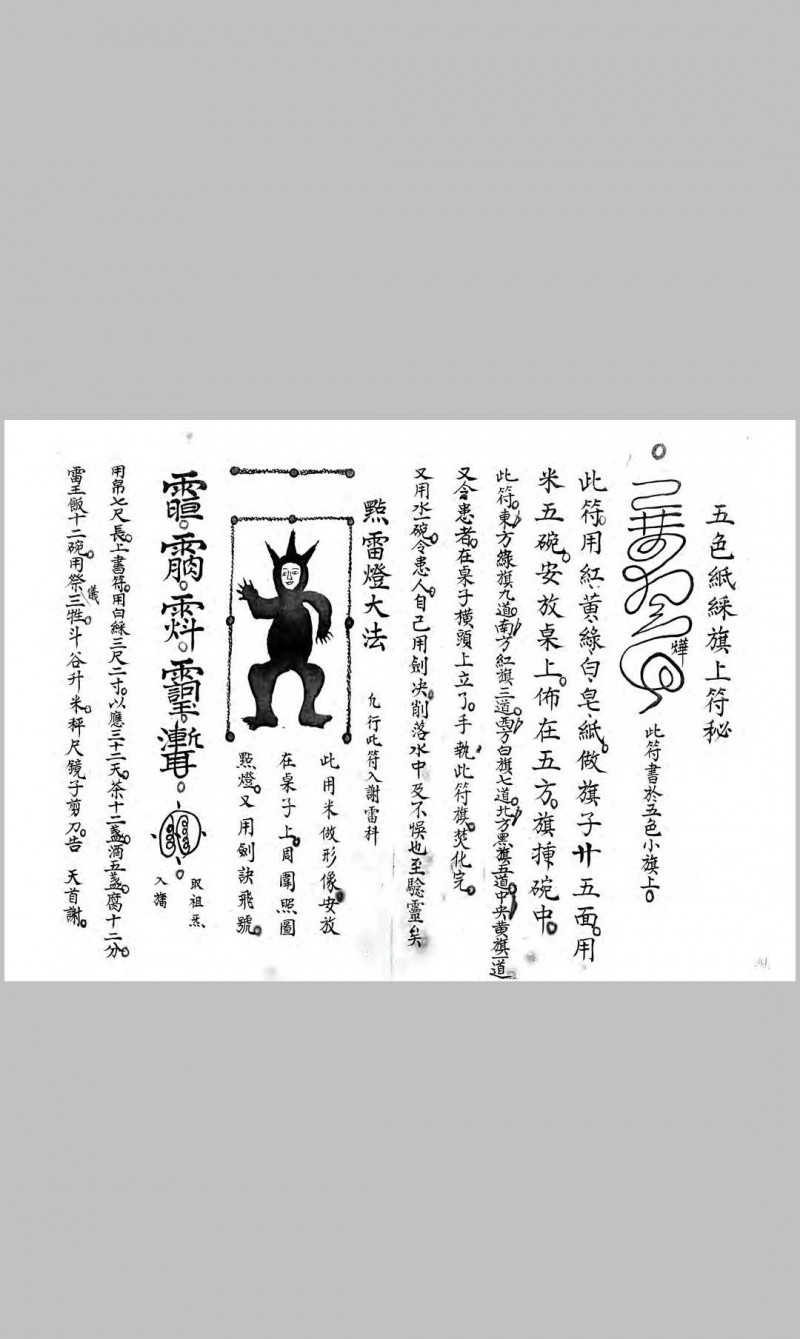 五色紙綵旗上符秘
燁
此符書於五色小旗上。
此符。用紅、黃、綠、白、皂、紙。做旗子廿五面。用
米五碗。安放桌上。佈在五方。旗揀碗中。
此符。東方綠旗九道。南方紅旗三道。西方白旗七道。北方黑旗五道。中央黃旗一道。
又令患者。在桌子橫頭上立了。手執此符旗。焚化完。
又用水一碗。令患人。自己用劍決。削落水中。及不悞也至騐靈矣
㸃雷燈大法
凢行此符入謝雷科
此用米做形像安放
在桌子上。周圍照圖
㸃燈。又用劍訣飛號。
取祖炁
入籓
用帛七尺長。上書符。用白綵三尺二寸。以應三十二天。茶十二盞。酒五盞。腐十二分。
雷王飯十二碗。用祭三牲。儀斗谷升米。秤尺鏡子剪刀。告 天首謝。